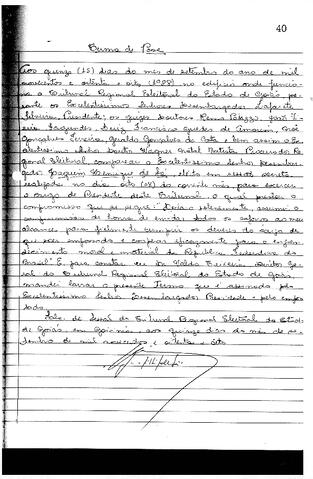 40
Termo de Posse
Aos quinze (15) dias do mês de setembro do ano de mil
novecentos e oitenta e oito (1988), no edifício onde funcio-
na o Tribunal Regional Eleitoral do Estado de Goiás, pe-
rante os Excelentíssimos Senhores Desembargadores Lafaiete
Silveira, Presidente; os juízes Doutores
Fagundes, Luiz Francisco Guedes de Amorim, José
Gonçalves Ferreira, Geraldo Gonçalves da Costa e bem assim o Ex-
celentíssimo Senhor Doutor Wagner Natal Batista, Procurador Re-
gional Eleitoral, compareceu o Excelentíssimo Senhor Desembar-
gador Joaquim Henrique de Sá, eleito em sessão secreta
realizada no dia oito (08) do corrente mês, para exercer
o cargo de Presidente deste Tribunal, o qual prestou o
compromisso que se segue: "Declaro solenemente, assumir o
compromisso de honra de envidar todos os esforços ao meu
alcance para fielmente cumprir os deveres do cargo de
que sou empossado e cooperar eficazmente para o engran-
decimento moral e material da República Federativa do
Brasil". E, para constar, eu, Diretor Ge-
ral do Tribunal Regional Eleitoral do Estado de Goiás,
mandei lavrar o presente Termo que é assinado pelo
Excelentíssimo Senhor Desembargador Presidente e pelo empos-
sado.
Sala de Sessões do Tribunal Regional Eleitoral do Estado
de Goiás, em Goiânia, aos quinze dias do mês de se-
tembro de mil novecentos e oitenta e oito.